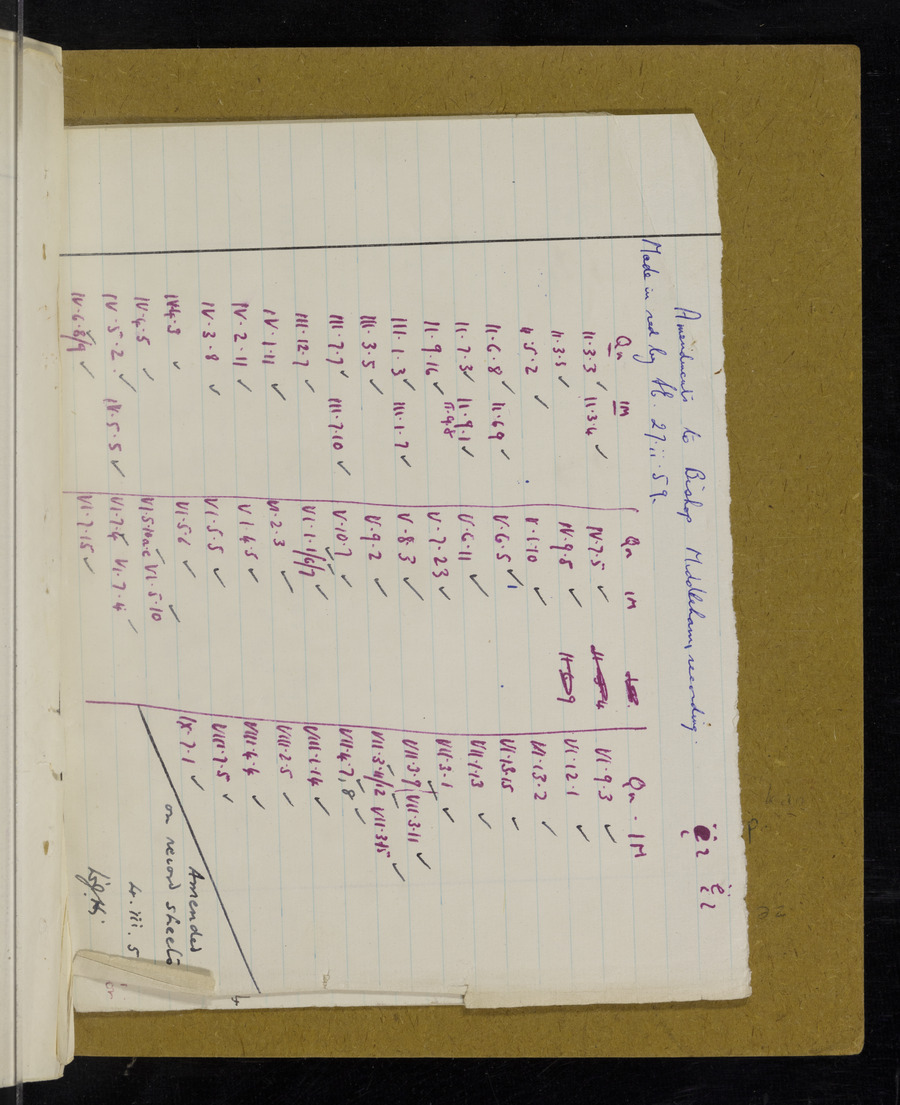 Amendments to Bishop Middleham recording.
Made in red by 27.ii.59.
Qn IM
II.3.3 ✓ II.3.4 ✓
II.3.5 ✓
II.5.2 ✓
II.6.8 ✓ II.6.9 ✓
II.7.3 ✓ II.9.1 ✓
II.9.16 ✓ II.9.8
III.1.3 ✓ III.1.7 ✓
III.3.5 ✓
III.7.7 ✓ III.7.10 ✓
III.12.7 ✓
IV.1.11 ✓
IV.2.11 ✓
IV.3.8 ✓
IV.4.3 ✓
IV.4.5 ✓
IV.5.2 ✓ IV.5.5 ✓
IV.6.8/9 ✓
Qn IM
IV.7.5 ✓
IV.9.8 ✓
V.1.10 ✓
V.6.5 ✓
V.6.11 ✓
V.7.23 ✓
V.8.3 ✓
V.9.2 ✓
V.10.7 ✓
VI.1.1/6/7 ✓
VI.2.3 ✓
VI.4.5 ✓
VI.5.5 ✓
VI.5.6 ✓
VI.5.10a-c VI.5.10 ✓
VI.7.4 ✓
VI.7.15 ✓
Qn. IM
VI.9.3 ✓
VI.12.1 ✓
VI.13.2 ✓
VI.13.15 ✓
VII.1.13 ✓
VII.3.1 ✓
VII.3.9 (VII.3.11 ✓
VII.3.4/12 VII.3.15 ✓
VII.4.7, 8 ✓
VIII.1.14 ✓
VIII.2.5 ✓
VIII.4.4 ✓
VIII.7.5 ✓
IX.7.1 ✓
Amended
on record sheets
4.iii.5